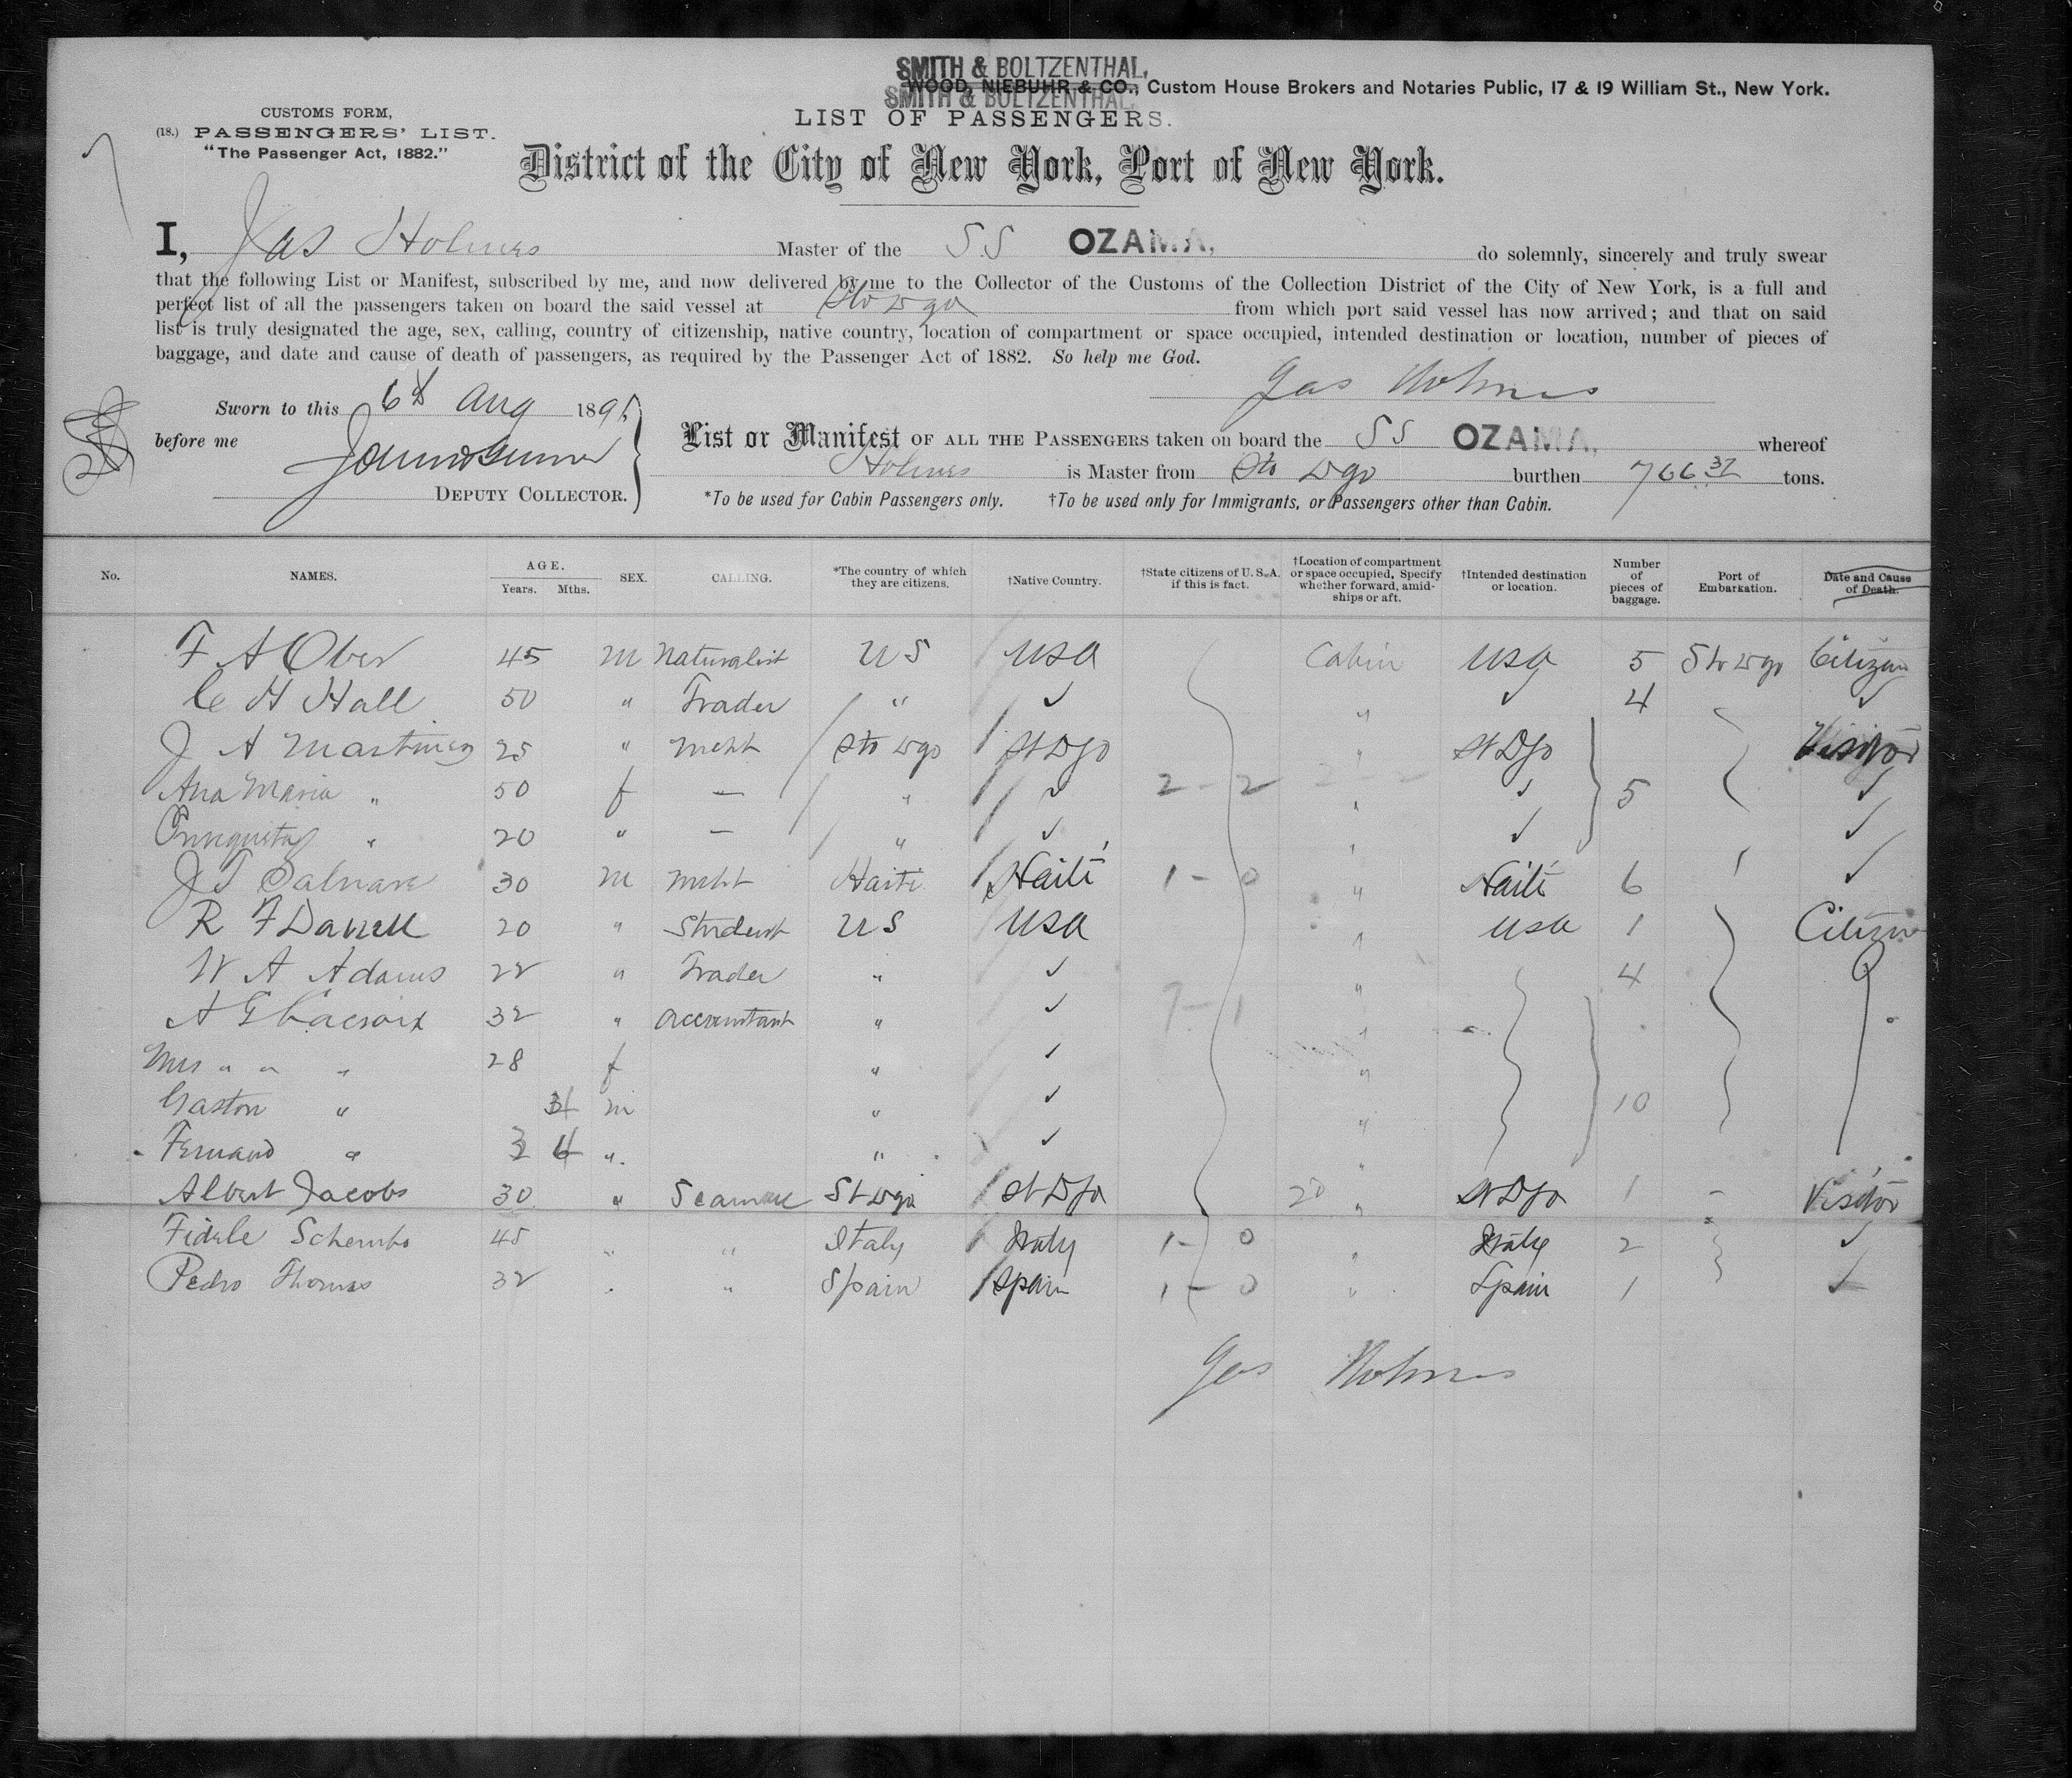 SMITH & BOLTZENTHAL,
WOOD, NIEBUHR & CO., Custom House Brokers and Notaries Public, 17 & 19 William St., New York.
SMITH & BOLTZENTHAL,
CUSTOMS FORM,
(18.) PASSENGERS' LIST.
"The Passenger Act, 1882."
LIST OF PASSENGERS.
District of the City of New York, Port of New York.
I, Jas Holmes Master of the SS OZAMA, do solemnly, sincerely and truly swear
that the following List or Manifest, subscribed by me, and now delivered by me to the Collector of the Customs of the Collection District of the City of New York, is a full and
perfect list of all the passengers taken on board the said vessel at Sto Dgo from which port said vessel has now arrived; and that on said
list is truly designated the age, sex, calling, country of citizenship, native country, location of compartment or space occupied, intended destination or location, number of pieces of
baggage, and date and cause of death of passengers, as required by the Passenger Act of 1882. So help me God.
Jas Holmes
Sworn to this 6th Aug 189
before me
DEPUTY COLLECTOR.
List or Manifest OF ALL THE PASSENGERS taken on board the SS OZAMA, whereof
Holmes is Master from Sto Dgo burthen 766 37 tons.
*To be used for Cabin Passengers only. †To be used only for Immigrants, or Passengers other than Cabin.
No. NAMES. AGE. Years. Mths. SEX. CALLING. *The country of which they are citizens. †Native Country. †State citizens of U.S.A. if this is fact. †Location of compartment or space occupied, Specify whether forward, amidships or aft. †Intended destination or location. Number of pieces of baggage. Port of Embarkation. Date and Cause of Death.
F A Ober 45 m Naturalist US USA Cabin USA 5 Sto Dgo Citizen
C H Hall 50 " Trader " ✓ " ✓ 4 ✓
J A Martinez 25 " Mcht Sto Dgo St Dgo " St Dgo Visitor
Ana Maria " 50 f — " ✓ 2 - 2 2 - 2 " ✓ 5 ✓
" 20 " — " ✓ " ✓ ✓
J T 30 m Mcht Haiti Haiti 1 - 0 " Haiti 6 ✓
R F 20 " Student US USA " USA 1 Citizen
W A Adams 22 " Trader " ✓ " 4
A G Lacroix 32 " Accountant " ✓ - 1 "
Mrs " " " 28 f " ✓ "
Gaston " m " ✓ " 10
Fernand " " " ✓ "
Albert Jacobs 30 " Seaman St Dgo St Dgo 20 " St Dgo 1 - Visitor
Fidele Schembo 45 " " Italy Italy 1 - 0 " Italy 2 ✓
Pedro Thomas 32 " " Spain Spain 1 - 0 " Spain 1 ✓
Jas Holmes